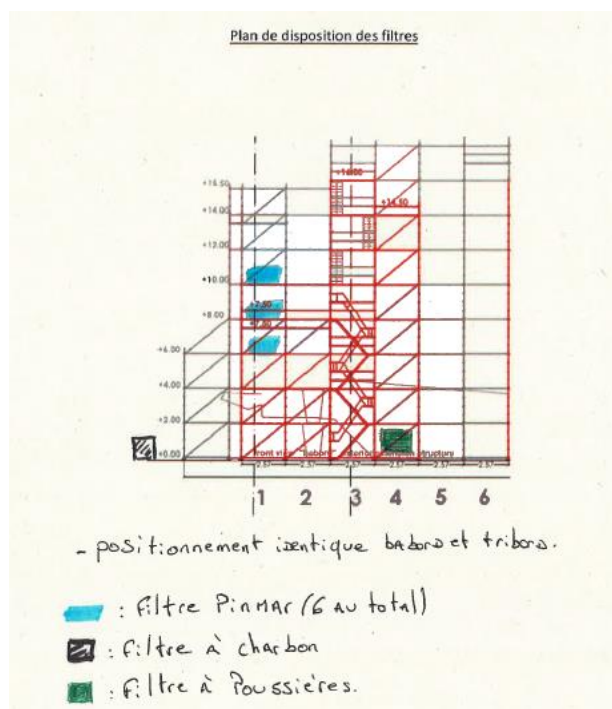 Plan de disposition des filtres
+16.00
+16.50
+14.50
+14.00
+12.00
+10.00
+8.00
+7.50
+6.00
+4.00
+2.00
+0.00
2.57 2.57 2.57 2.57 2.57
1 2 3 4 5 6
- positionnement identique babord et tribord.
: Filtre PinMar (6 au total)
: Filtre à charbon
: Filtre à Poussières.